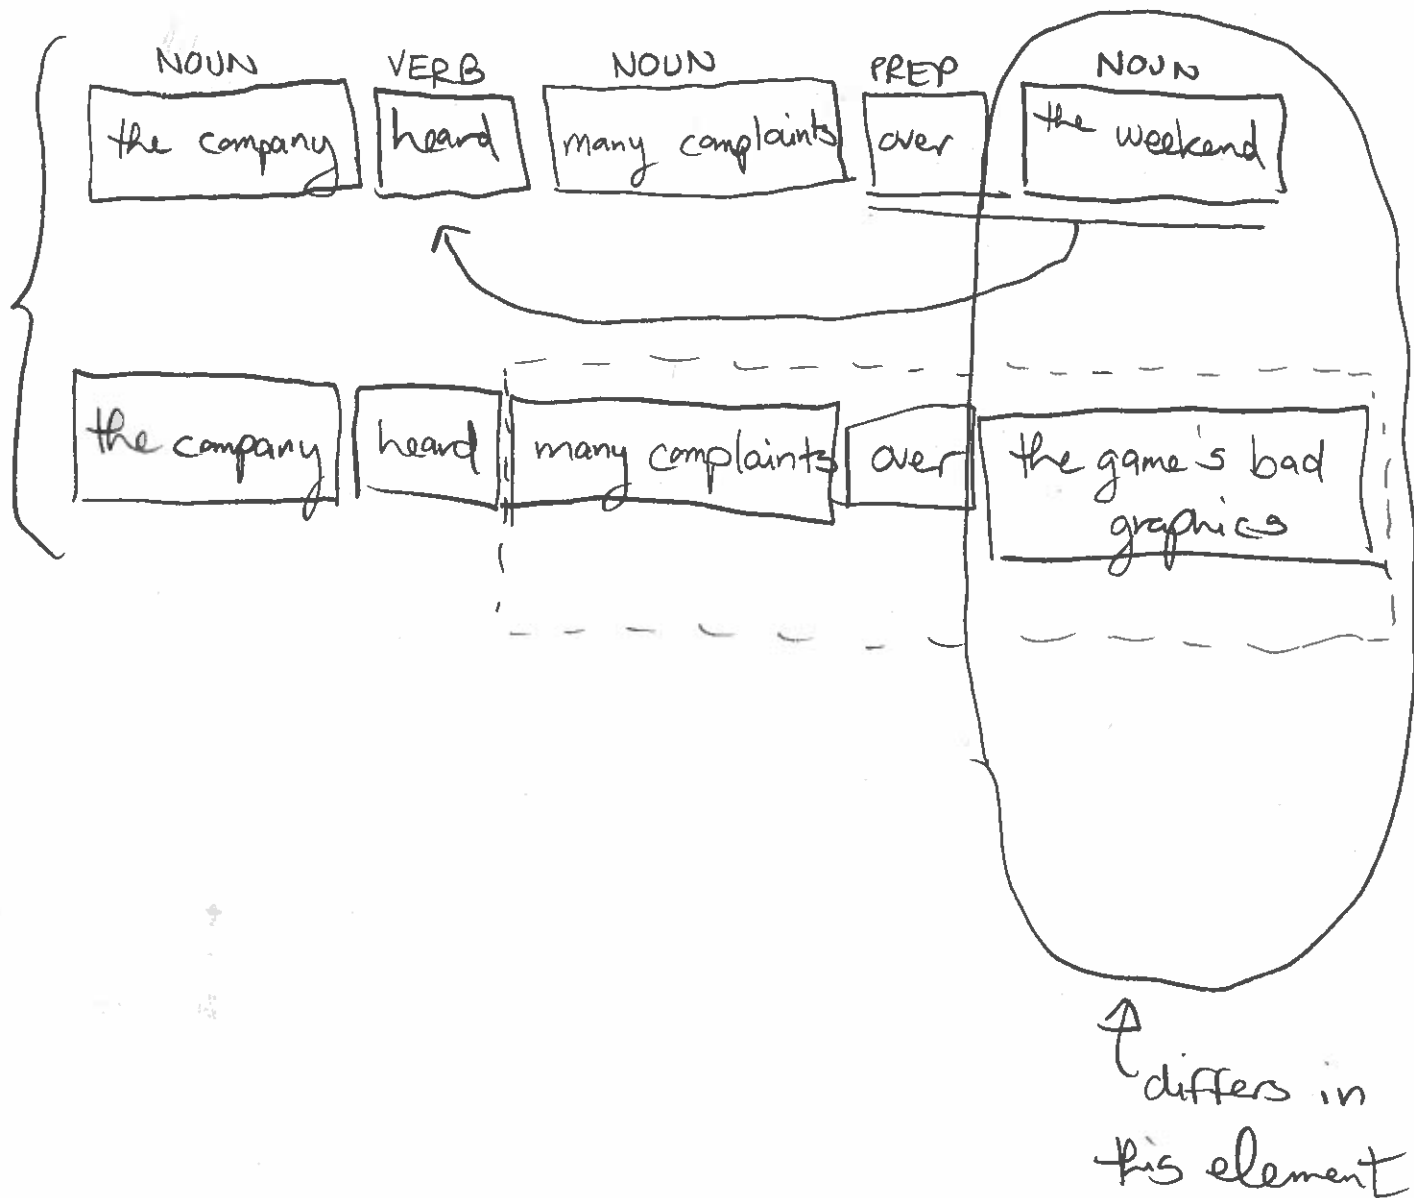 NOUN VERB NOUN PREP NOUN
the company heard many complaints over the weekend
the company heard many complaints over the game's bad
graphics
differs in
this element